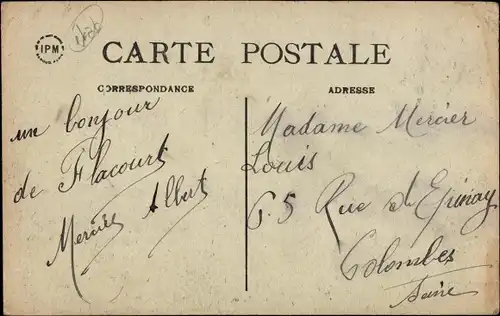 IPM
CARTE POSTALE
CORRESPONDANCE
ADRESSE
un bonjour
de Flacourt
Mercier Albert
Madame Mercier
Louis
65 Rue d'Epinay
Colombes
Seine